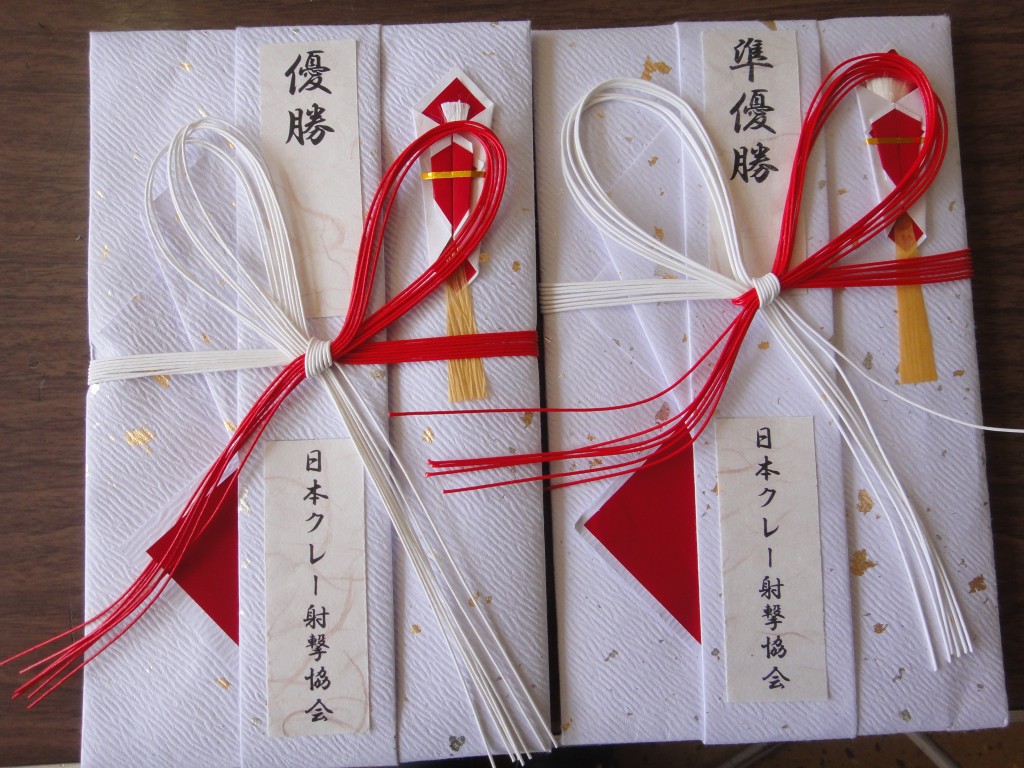 優勝
日本クレー射撃協会
準優勝
日本クレー射撃協会